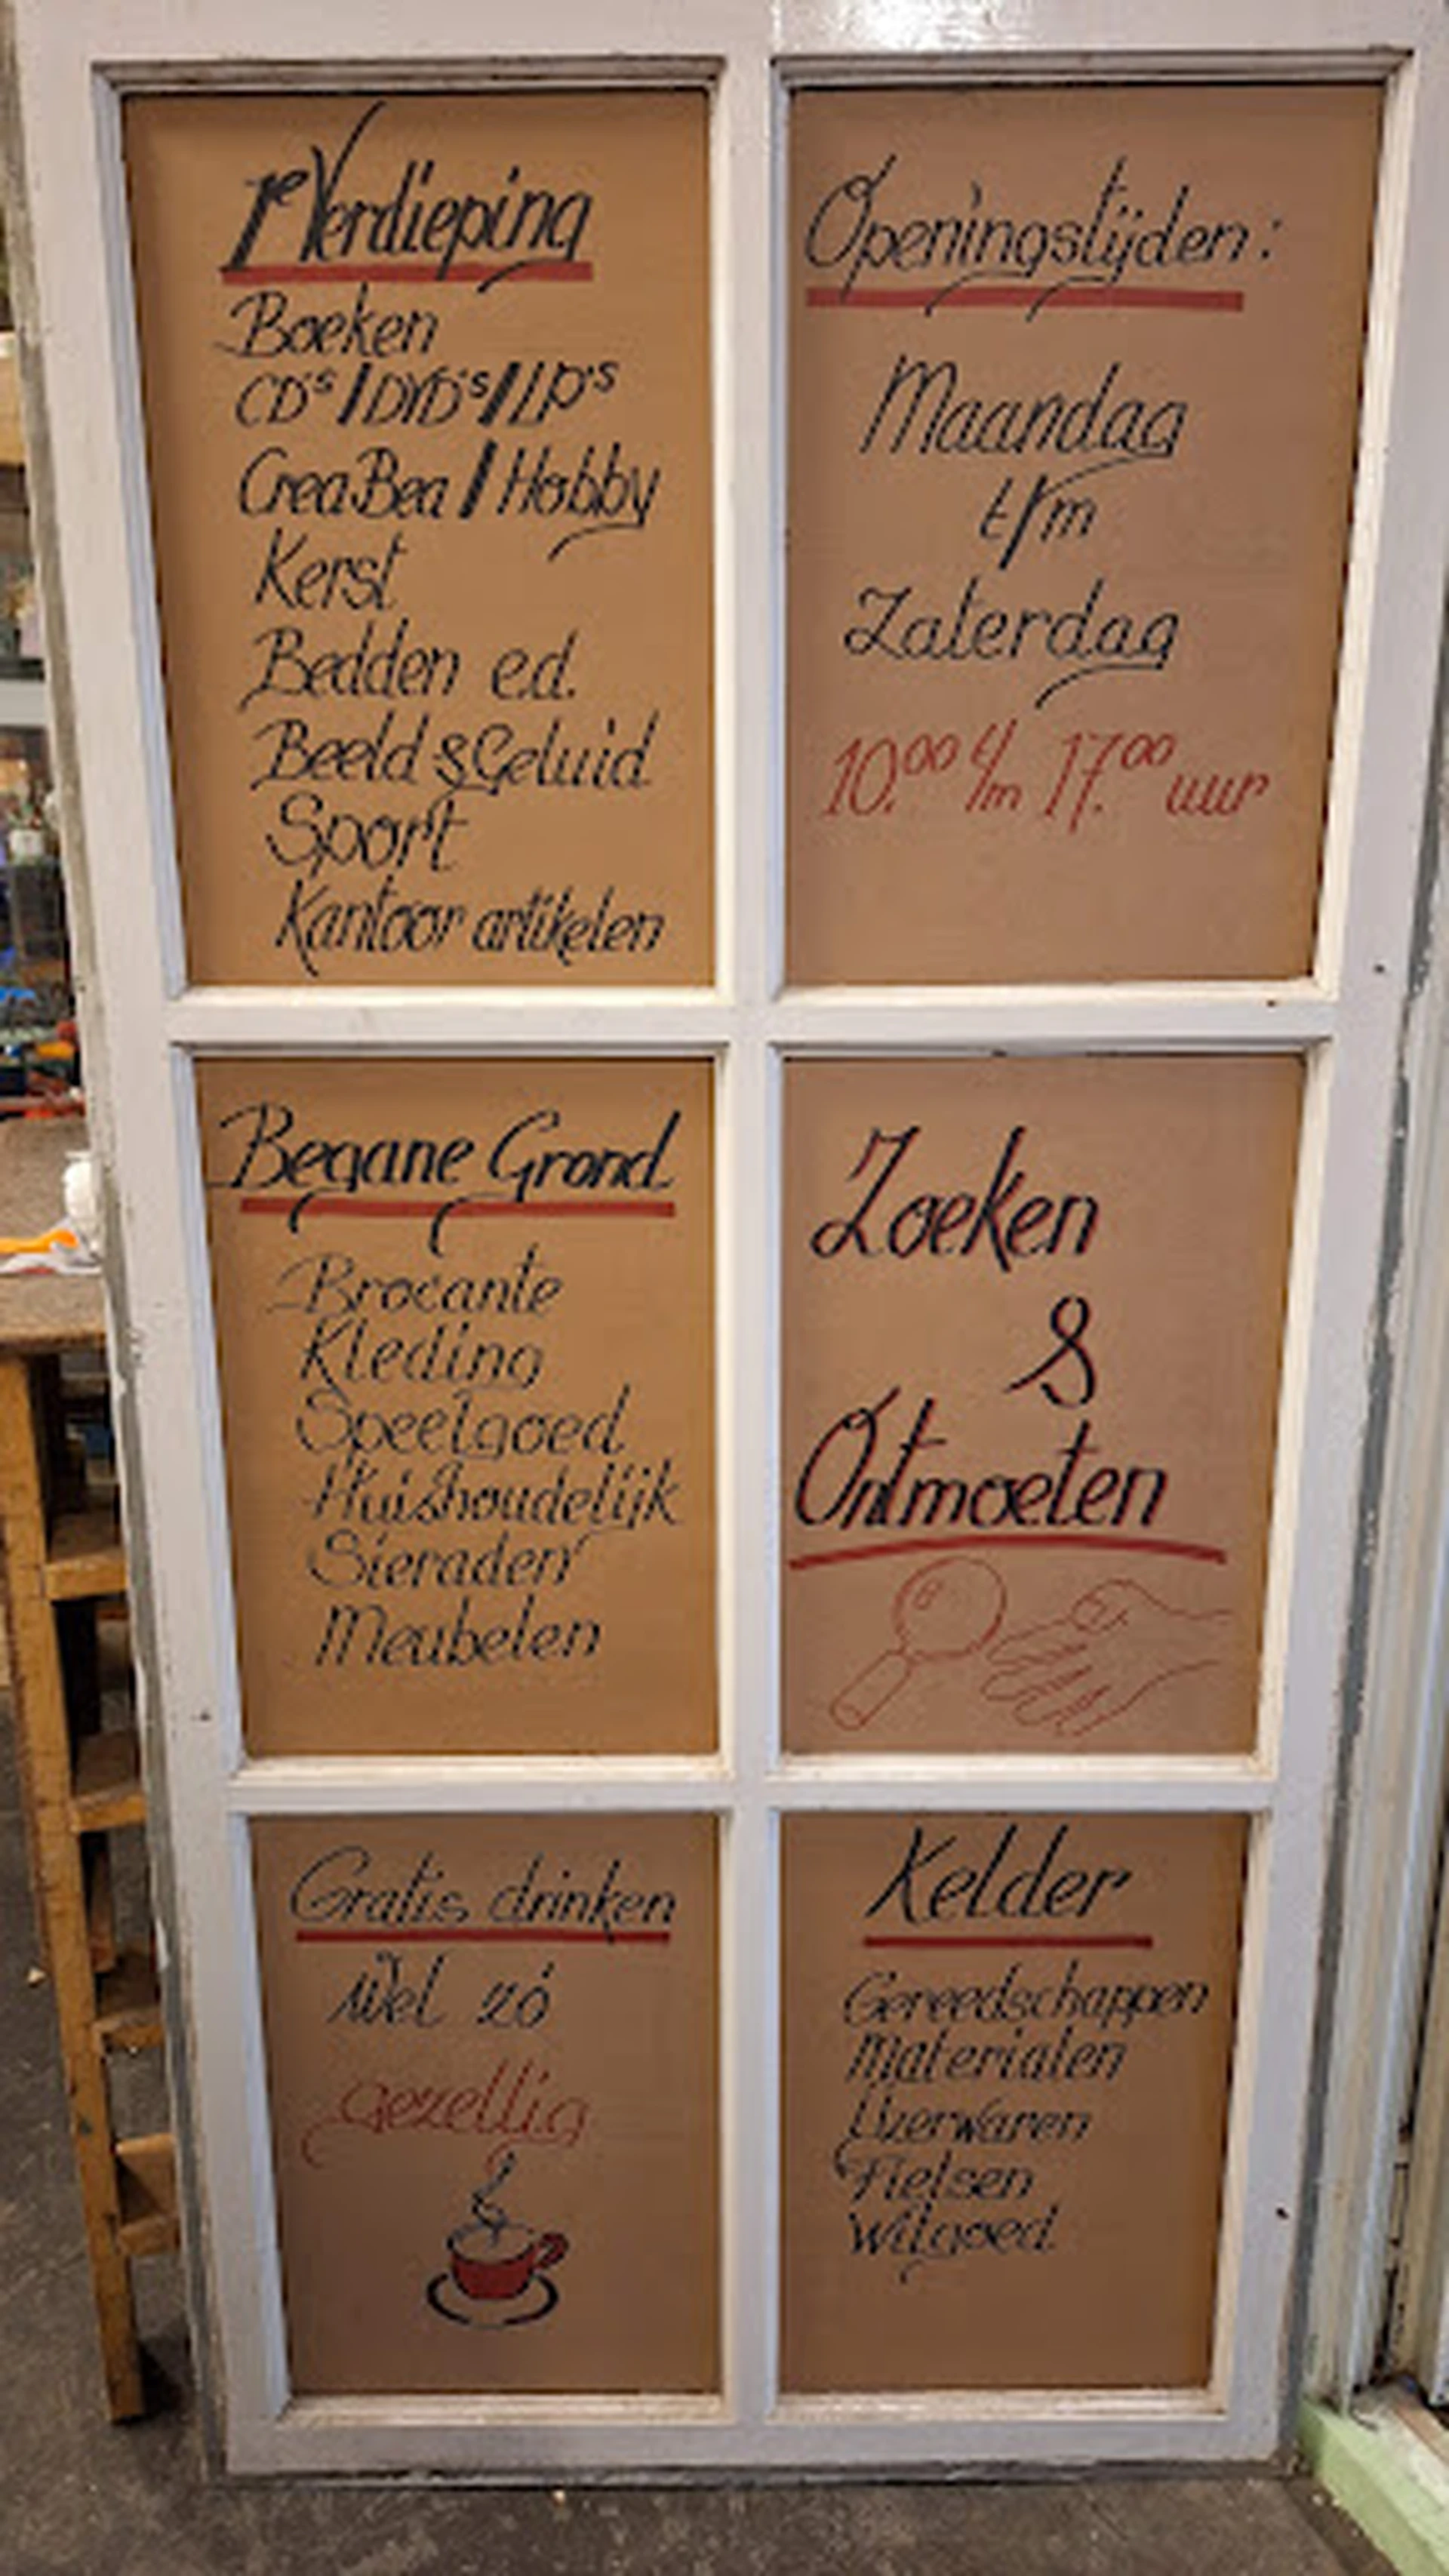 1e Verdieping
Boeken
CD's / DVD's / LP's
CreaBea / Hobby
Kerst
Bedden e.d.
Beeld & Geluid
Sport
Kantoor artikelen
Openingstijden:
Maandag
t/m
Zaterdag
10.00 t/m 17.00 uur
Begane Grond
Brocante
Kleding
Speelgoed
Huishoudelijk
Sieraden
Meubelen
Zoeken
&
Ontmoeten
Gratis drinken
Wel zó
gezellig
Kelder
Gereedschappen
Materialen
IJzerwaren
Fietsen
Witgoed